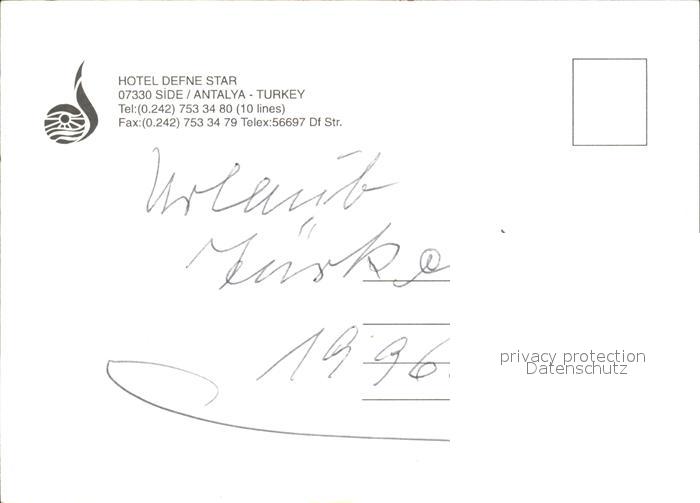 HOTEL DEFNE STAR
07330 SİDE / ANTALYA - TURKEY
Tel:(0.242) 753 34 80 (10 lines)
Fax:(0.242) 753 34 79 Telex:56697 Df Str.
Urlaub
Türke
1996
privacy protection
Datenschutz